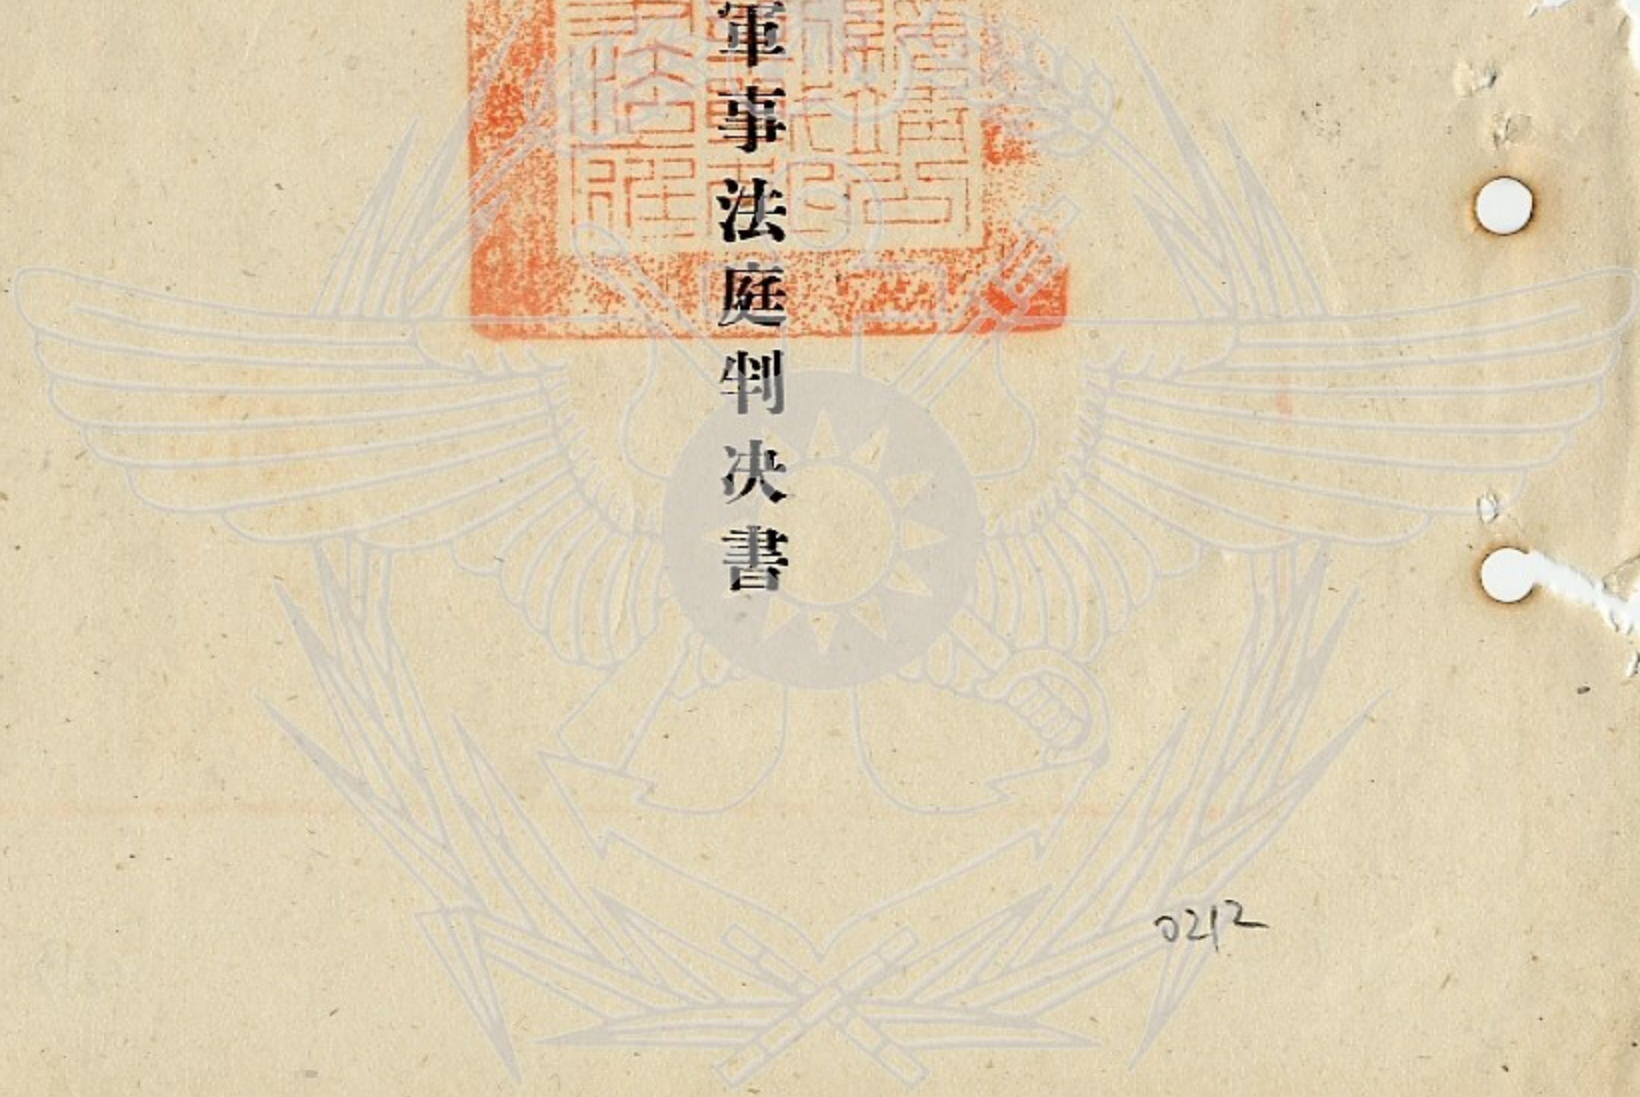 軍事法庭判决書
0212